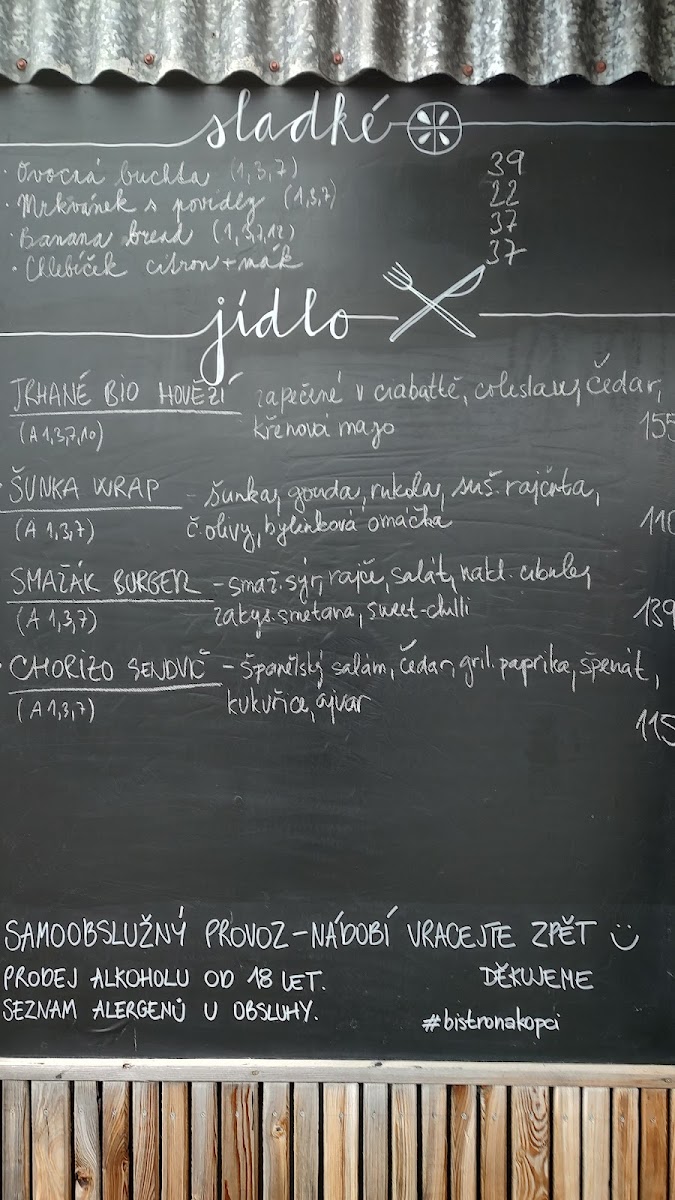 sladké
· Ovocná buchta (1,3,7) 39
· Mrkvánek s povidly (1,3,7) 22
· Banana bread (1,3,7,12) 37
· Chlebíček citron + mák 37
jídlo
TRHANÉ BIO HOVĚZÍ zapečené v ciabattě, coleslaw, čedar,
(A 1,3,7,10) křenová mayo 155
· ŠUNKA WRAP - šunka, gouda, rukola, suš. rajčata,
(A 1,3,7) č. olivy, bylinková omáčka 110
SMAŽÁK BURGER - smaž. sýr, rajče, salát, nakl. cibule,
(A 1,3,7) zakys. smetana, sweet-chilli 139
· CHORIZO SENDVIČ - Španělský salám, čedar, gril. paprika, špenát,
(A 1,3,7) kukuřice, ajvar 115
SAMOOBSLUŽNÝ PROVOZ - NÁDOBÍ VRACEJTE ZPĚT
PRODEJ ALKOHOLU OD 18 LET. DĚKUJEME
SEZNAM ALERGENŮ U OBSLUHY. #bistronakopci